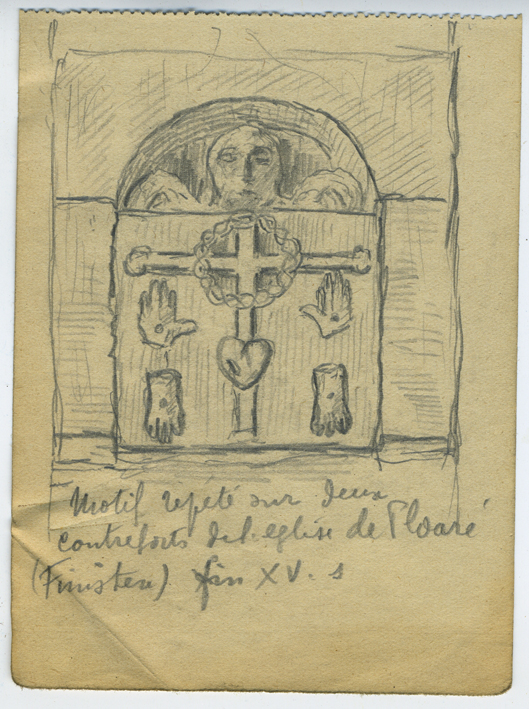 Motif repété sur deux
contreforts de l'eglise de Ploaré
(Finistere) fin XV. s